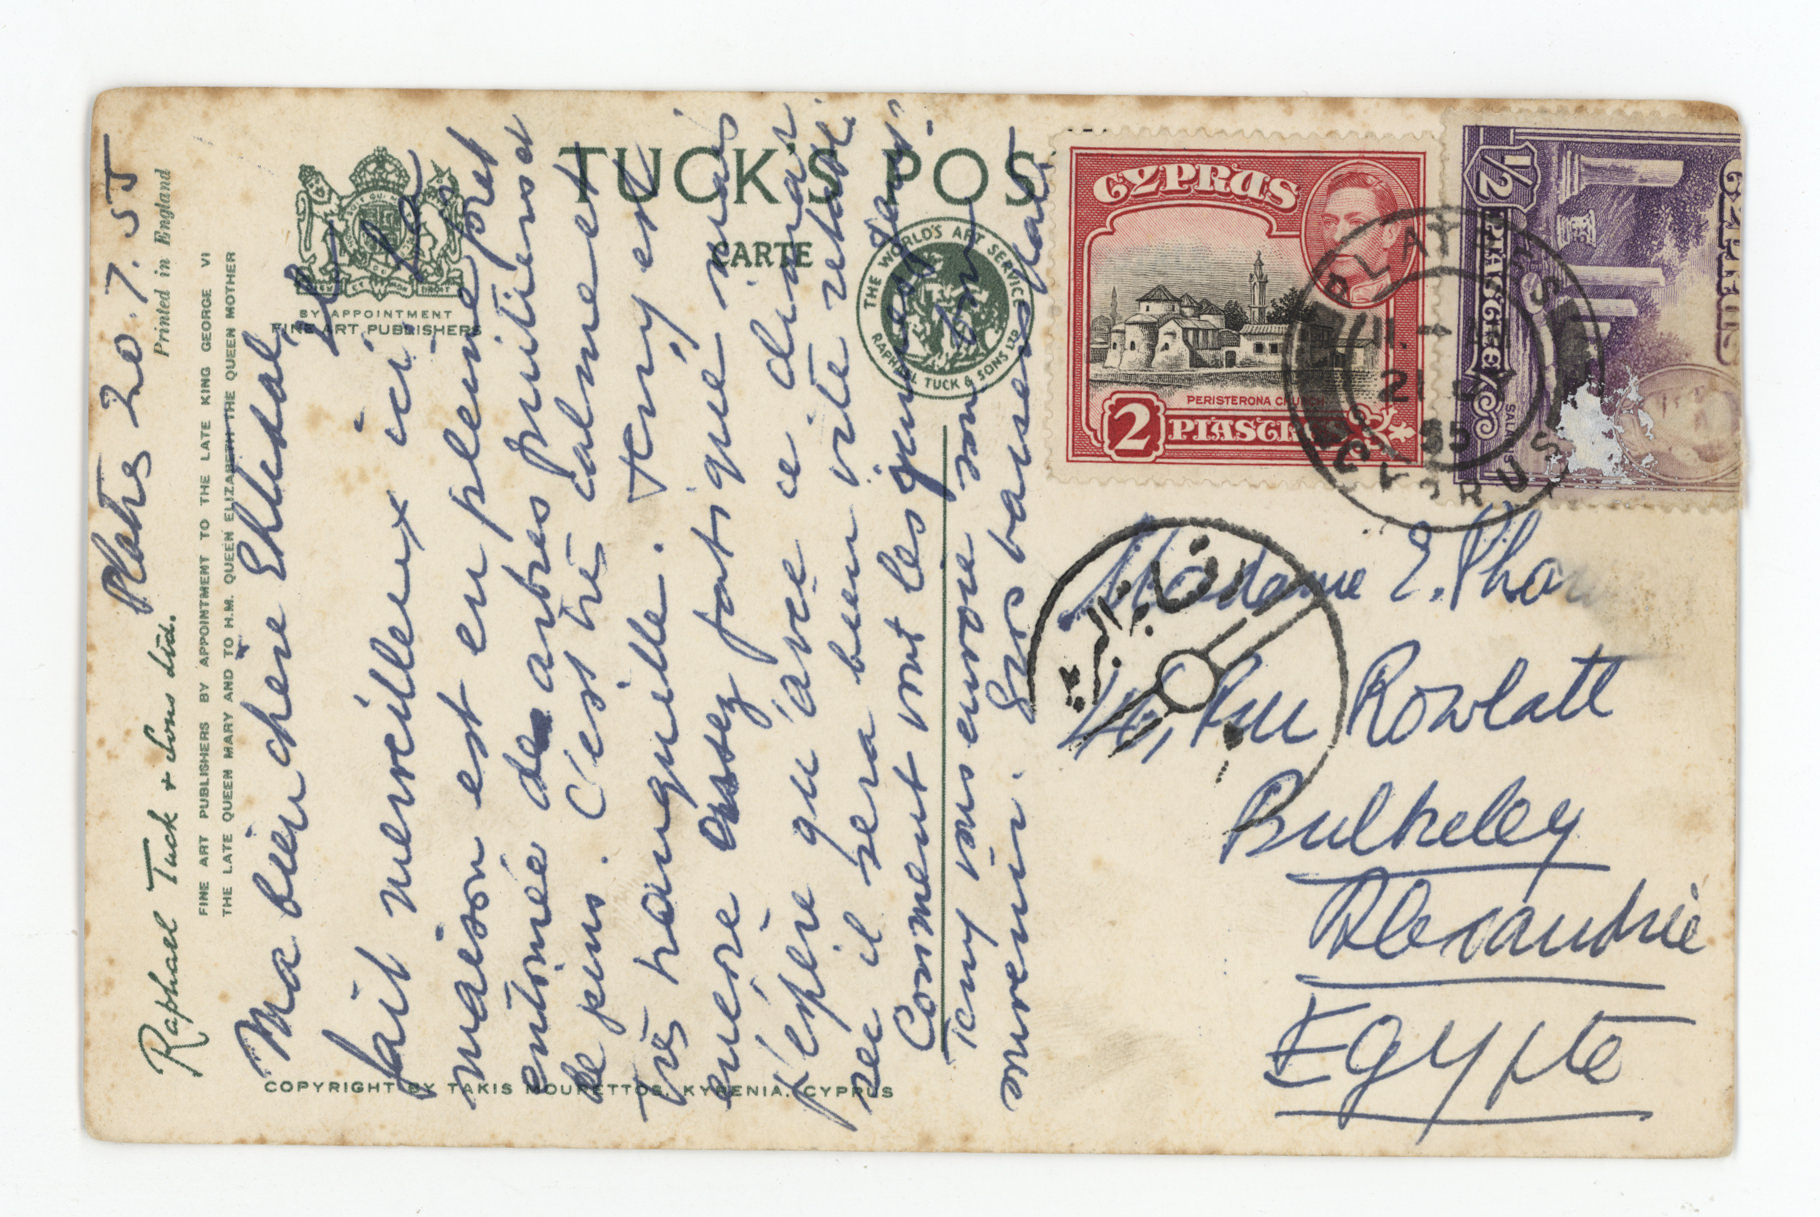 Platres 20.7.55
Ma bien chère
Il
fait merveilleux ici. La
maison est en pleine forêt
entourée de arbres fruitiers et
de pins. C'est très calme et
très tranquille. Tony est
encore assez fatigué mais
j'espère qu'avec ce climat
sec il sera bien vite rétabli
Comment vont les jumeaux?
Tony ton
souvenir. Gros baisers
Madame E.
Rue Rowlatt
Bulkeley
Alexandrie
Egypte
TUCK'S POS
CARTE
BY APPOINTMENT
FINE ART PUBLISHERS
THE WORLD'S ART SERVICE
RAPHAEL TUCK & SONS LTD
Raphael Tuck & Sons Ltd.
Printed in England
FINE ART PUBLISHERS BY APPOINTMENT TO THE LATE KING GEORGE VI
THE LATE QUEEN MARY AND TO H.M. QUEEN ELIZABETH THE QUEEN MOTHER
COPYRIGHT BY TAKIS MOURETTOS, KYRENIA, CYPRUS
CYPRUS
PERISTERONA CHURCH
2 PIASTRES
CYPRUS
½ PIASTRE
PLATRES
21
55
CYPRUS